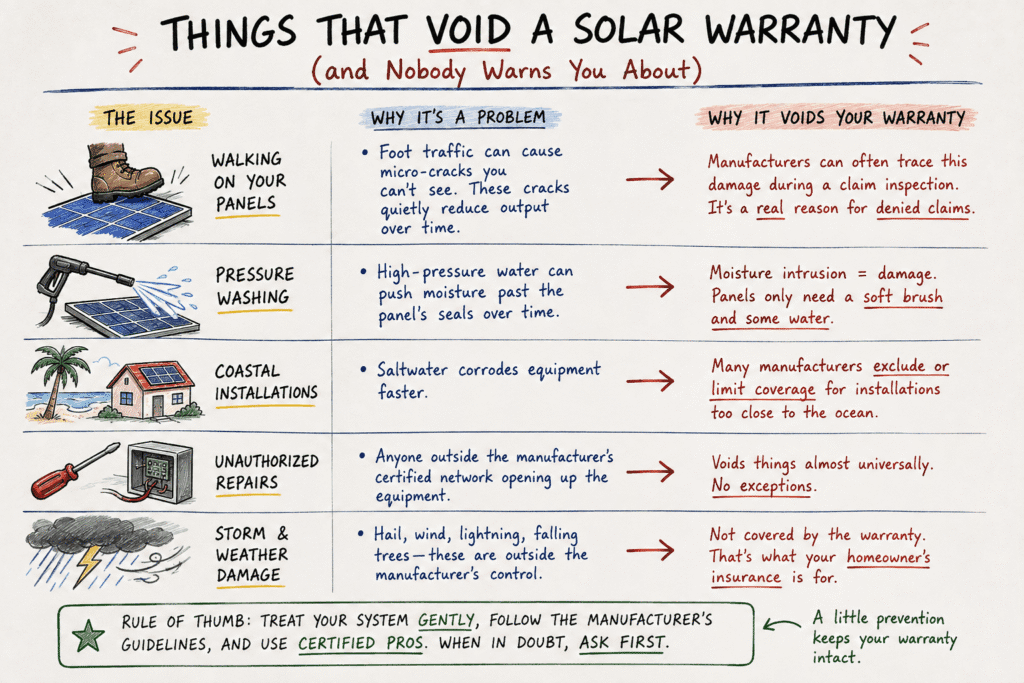 THINGS THAT VOID A SOLAR WARRANTY
(and Nobody Warns You About)
THE ISSUE
WHY IT'S A PROBLEM
WHY IT VOIDS YOUR WARRANTY
WALKING
ON YOUR
PANELS
• Foot traffic can cause
micro-cracks you
can't see. These cracks
quietly reduce output
over time.
Manufacturers can often trace this
damage during a claim inspection.
It's a real reason for denied claims.
PRESSURE
WASHING
• High-pressure water can
push moisture past the
panel's seals over time.
Moisture intrusion = damage.
Panels only need a soft brush
and some water.
COASTAL
INSTALLATIONS
• Saltwater corrodes equipment
faster.
Many manufacturers exclude or
limit coverage for installations
too close to the ocean.
UNAUTHORIZED
REPAIRS
• Anyone outside the manufacturer's
certified network opening up the
equipment.
Voids things almost universally.
No exceptions.
STORM &
WEATHER
DAMAGE
• Hail, wind, lightning, falling
trees—these are outside the
manufacturer's control.
Not covered by the warranty.
That's what your homeowner's
insurance is for.
RULE OF THUMB: TREAT YOUR SYSTEM GENTLY, FOLLOW THE MANUFACTURER'S
GUIDELINES, AND USE CERTIFIED PROS. WHEN IN DOUBT, ASK FIRST.
A little prevention
keeps your warranty
intact.